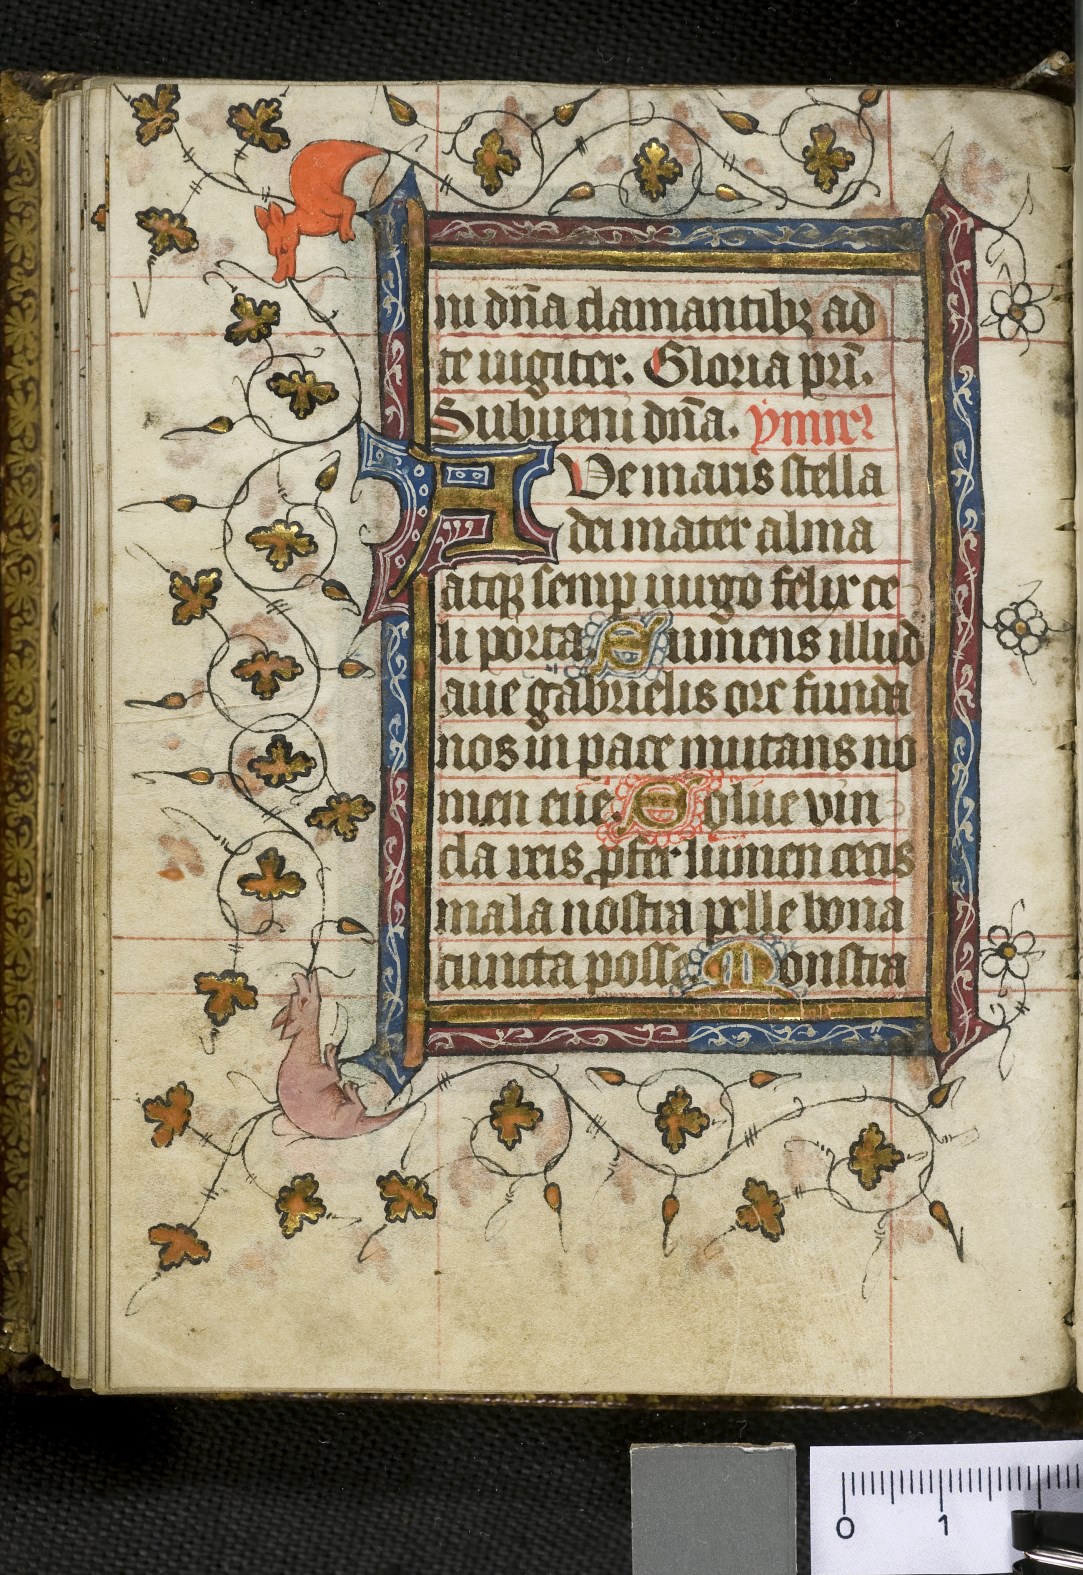 ni dn̄a clamantibꝫ ad
te iugiter. Gloria pri̅.
Subueni dn̄a. ymne᷒
AVe maris stella
dei mater alma
atqꝫ semꝑ uirgo felix ce
li porta Sumens illud
aue gabrielis ore funda
nos in pace mutans no
men eue. Solue vin
cla reis ꝓfer lumen cecis
mala nostra pelle bona
cuncta posse Monstra
0 1